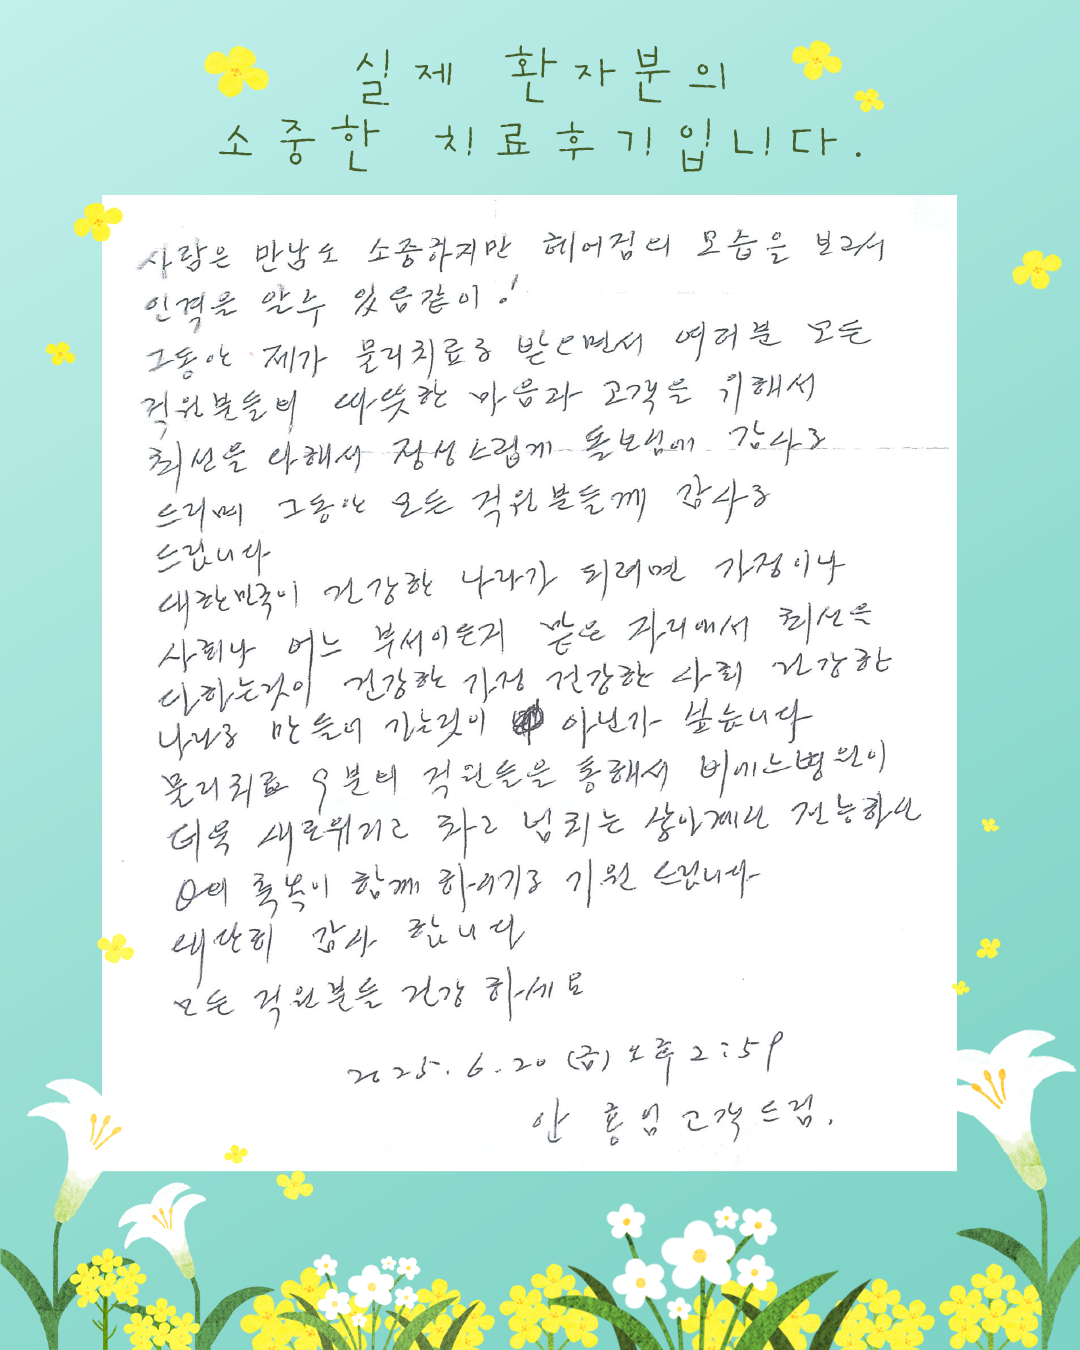 실제 환자분의
소중한 치료후기입니다.
사람은 만남도 소중하지만 헤어짐의 모습을 보고서
인격을 알수 있음같이!
그동안 제가 물리치료를 받으면서 여러분 모든
직원분들의 따뜻한 마음과 고객을 위해서
최선을 다해서 정성스럽게 돌보심에 감사를
드리며 그동안 모든 직원분들께 감사를
드립니다
대한민국이 건강한 나라가 되려면 가정이나
사회나 어느 부서이든지 맡은 자리에서 최선을
다하는것이 건강한 가정 건강한 사회 건강한
나라를 만들어 가는것이 아닌가 싶습니다
물리치료 9분의 직원들을 통해서 버에느병원이
더욱 새로워지고 차고 넘치는 살아계신 전능하신
의 축복이 함께 하시기를 기원 드립니다
대단히 감사 합니다
모든 직원분들 건강 하세요
2025. 6. 20 (금) 오후 2:59
안 고객 드림.